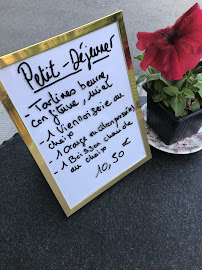 Petit-Déjeuner
- Tartines beurre,
confiture, miel
- 1 Viennoiserie au
choix
- 1 Orange ou
- 1 Boisson chaude
au choix
10,50 €